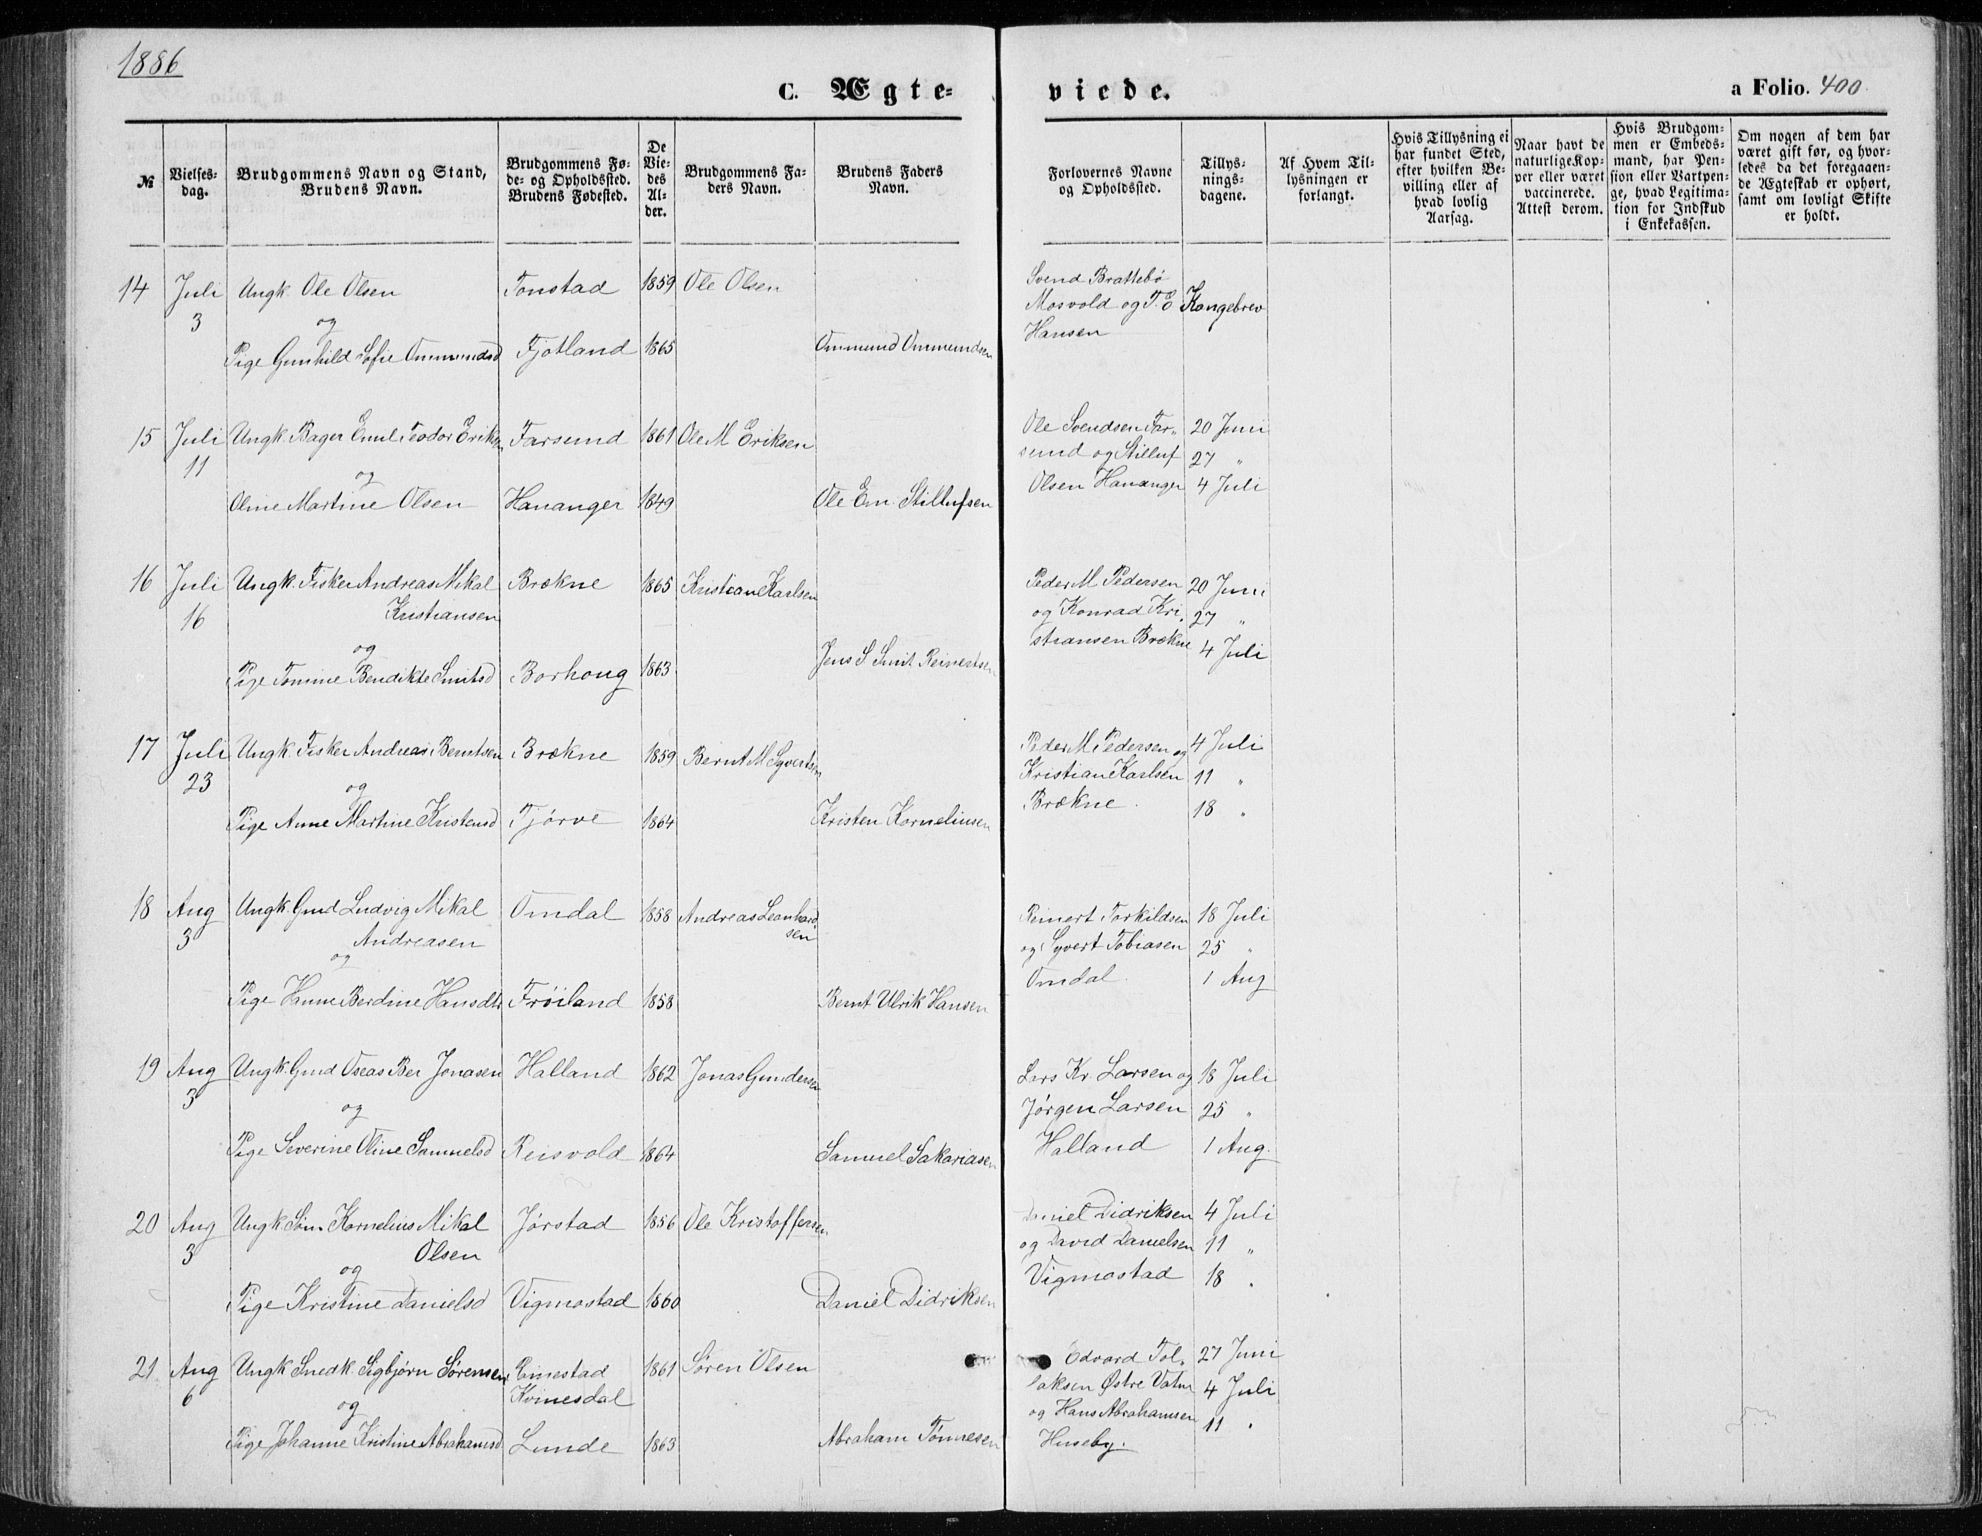 1886
C. Ægte=
viede.
a Folio. 400
№
Vielses-
dag.
Brudgommens Navn og Stand,
Brudens Navn.
Brudgommens Fø-
de- og Opholdssted.
Brudens Fødested.
De
Vie-
des
Al-
der.
Brudgommens Fa-
ders Navn.
Brudens Faders
Navn.
Forlovernes Navne
og Opholdsted.
Tillys-
nings-
dagene.
Af Hvem Til-
lysningen er
forlangt.
Hvis Tillysning ei
har fundet Sted,
efter hvilken Be-
villing eller af
hvad lovlig
Aarsag.
Naar havt de
naturlige Kop-
per eller været
vaccinerede.
Attest derom.
Hvis Brudgom-
men er Embeds-
mand, har Pen-
sion eller Vartpen-
ge, hvad Legitima-
tion for Indskud
i Enkekassen.
Om nogen af dem har
været gift før, og hvor-
ledes da det foregaaen-
de Ægteskab er ophørt,
samt om lovligt Skifte
er holdt.
14 Juli 3 Ungk. Ole Olsen Tonstad 1859 Ole Olsen
og
Pige Gunhild Sofie Ommundsd Fjotland 1865 Ommund Ommundsen
Svend Brattebø
Mosvold og T. E Kongebrev
Hansen
15 Juli 11 Ungk. Bager Emil Teodor Eriksen Farsund 1861 Ole M Eriksen
og
Oline Martine Olsen Hananger 1849 Ole Em. Stillufsen
Ole Svendsen Far- 20 Juni
sund og Stilluf 27 "
Olsen Hananger 4 Juli
16 Juli 16 Ungk. Fisker Andreas Mikal Brækne 1865 Kristian Karlsen
Kristiansen
og
Pige Tomine Bendikte Smitsd Borhoug 1863 Jens S Smit Reinertsen
Peder M Pedersen 20 Juni
og Konrad Kri- 27 "
stiansen Brækne 4 Juli
17 Juli 23 Ungk. Fisker Andreas Berntsen Brækne 1859 Bernt M Syvertsen
og
Pige Anne Martine Kristensd Tjørve 1864 Kristen Korneliusen
Peder M Pedersen og 4 Juli
Kristian Karlsen 11 "
Brækne. 18 "
18 Aug 3 Ungk. Gmd Ludvig Mikal Omdal 1858 Andreas Leonhard-
Andreasen sen
og
Pige Hanne Berdine Hansdtr Frøiland 1858 Bernt Ulrik Hansen
Reinert Torkildsen 18 Juli
og Syvert Tobiasen 25 "
Omdal. 1 Aug
19 Aug 3 Ungk. Gmd Oseas Ber Jonasen Halland 1862 Jonas Gundersen
og
Pige Severine Oline Samuelsd Reisvold 1864 Samuel Sakariasen
Lars Kr. Larsen og 18 Juli
Jørgen Larsen 25 "
Halland 1 Aug.
20 Aug 3 Ungk Søm. Kornelius Mikal Jørstad 1856 Ole Kristoffersen
Olsen
og
Pige Kristine Danielsd Vigmostad 1860 Daniel Didriksen
Daniel Didriksen 4 Juli
og David Danielsen 11 "
Vigmostad 18 "
21 Aug 6 Ungk Snedk. Sigbjørn Sørensen Rinestad 1861 Søren Olsen
Kvinesdal
og
Pige Johanne Kristine Abrahamsd Lunde 1863 Abraham Tønnesen
Edvard Tol- 27 Juni
laksen Østre Vatne 4 Juli
og Hans Abrahamsen 11 "
Huseby.